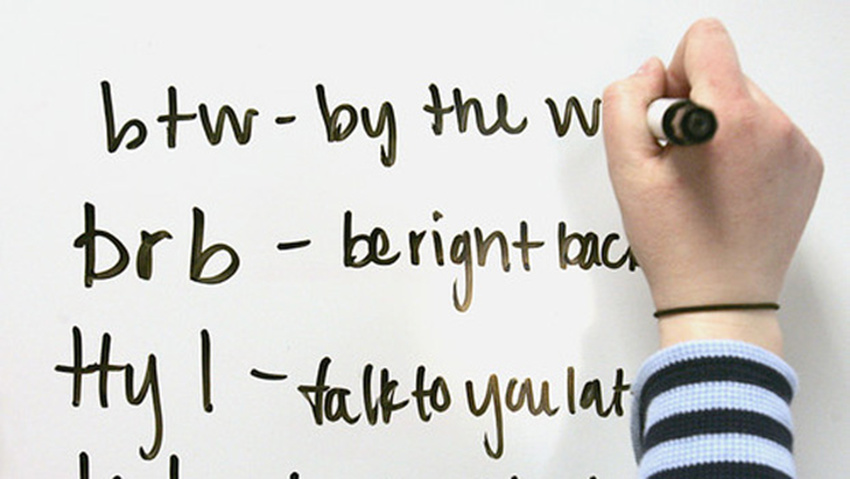 btw - by the w
brb - be right back
ttyl - talk to you lat